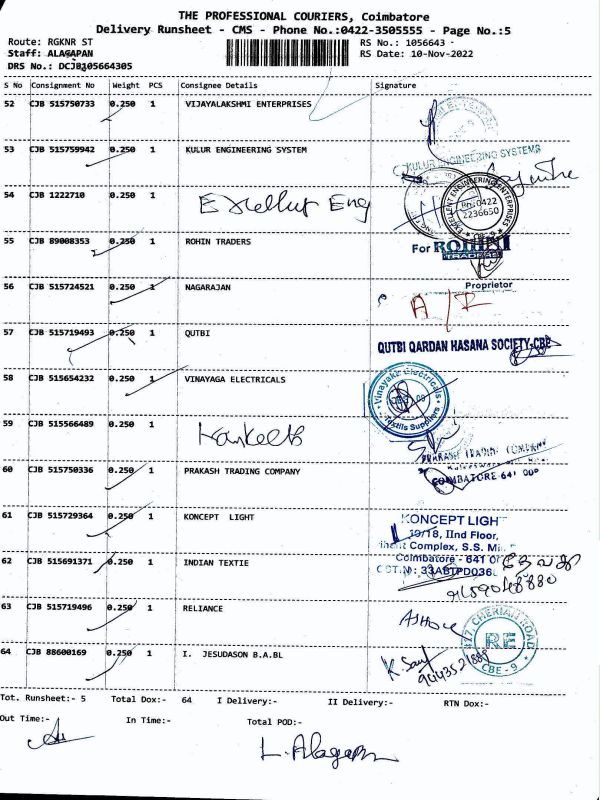 THE PROFESSIONAL COURIERS, Coimbatore
Delivery Runsheet - CMS - Phone No.:0422-3505555 - Page No.:5
Route: RGKNR ST
RS No.: 1056643
Staff: ALAGAPAN
RS Date: 10-Nov-2022
DRS No.: DCJB105664305
S No Consignment No Weight PCS Consignee Details Signature
52 CJB 515750733 0.250 1 VIJAYALAKSHMI ENTERPRISES
53 CJB 515759942 0.250 1 KULUR ENGINEERING SYSTEM
KULUR ENGINEERING SYSTEMS
54 CJB 1222710 0.250 1 Excellent Eng
EXCELLENT ENGINEERING ENTERPRISES
Ph:0422
2236650
CBE-9
55 CJB 89008353 0.250 1 ROHIN TRADERS
For ROHINI
TRADERS
Proprietor
56 CJB 515724521 0.250 1 NAGARAJAN
A/R
57 CJB 515719493 0.250 1 QUTBI
QUTBI QARDAN HASANA SOCIETY-CBE
58 CJB 515654232 0.250 1 VINAYAGA ELECTRICALS
Vinayaka Electricals
Textils Suppliers
59 CJB 515566489 0.250 1
PRAKASH TRADING COMPANY
COIMBATORE-641 009
60 CJB 515750336 0.250 1 PRAKASH TRADING COMPANY
61 CJB 515729364 0.250 1 KONCEPT LIGHT
KONCEPT LIGH
19/18, IInd Floor,
Complex, S.S.
Coimbatore - 641
33ABTPD036
62 CJB 515691371 0.250 1 INDIAN TEXTIE
63 CJB 515719496 0.250 1 RELIANCE
477, CHERIAN ROAD
RE
CBE - 9
64 CJB 88600169 0.250 1 I. JESUDASON B.A.BL
Tot. Runsheet:- 5 Total Dox:- 64 I Delivery:- II Delivery:- RTN Dox:-
Out Time:- In Time:- Total POD:-
L. Alagapan